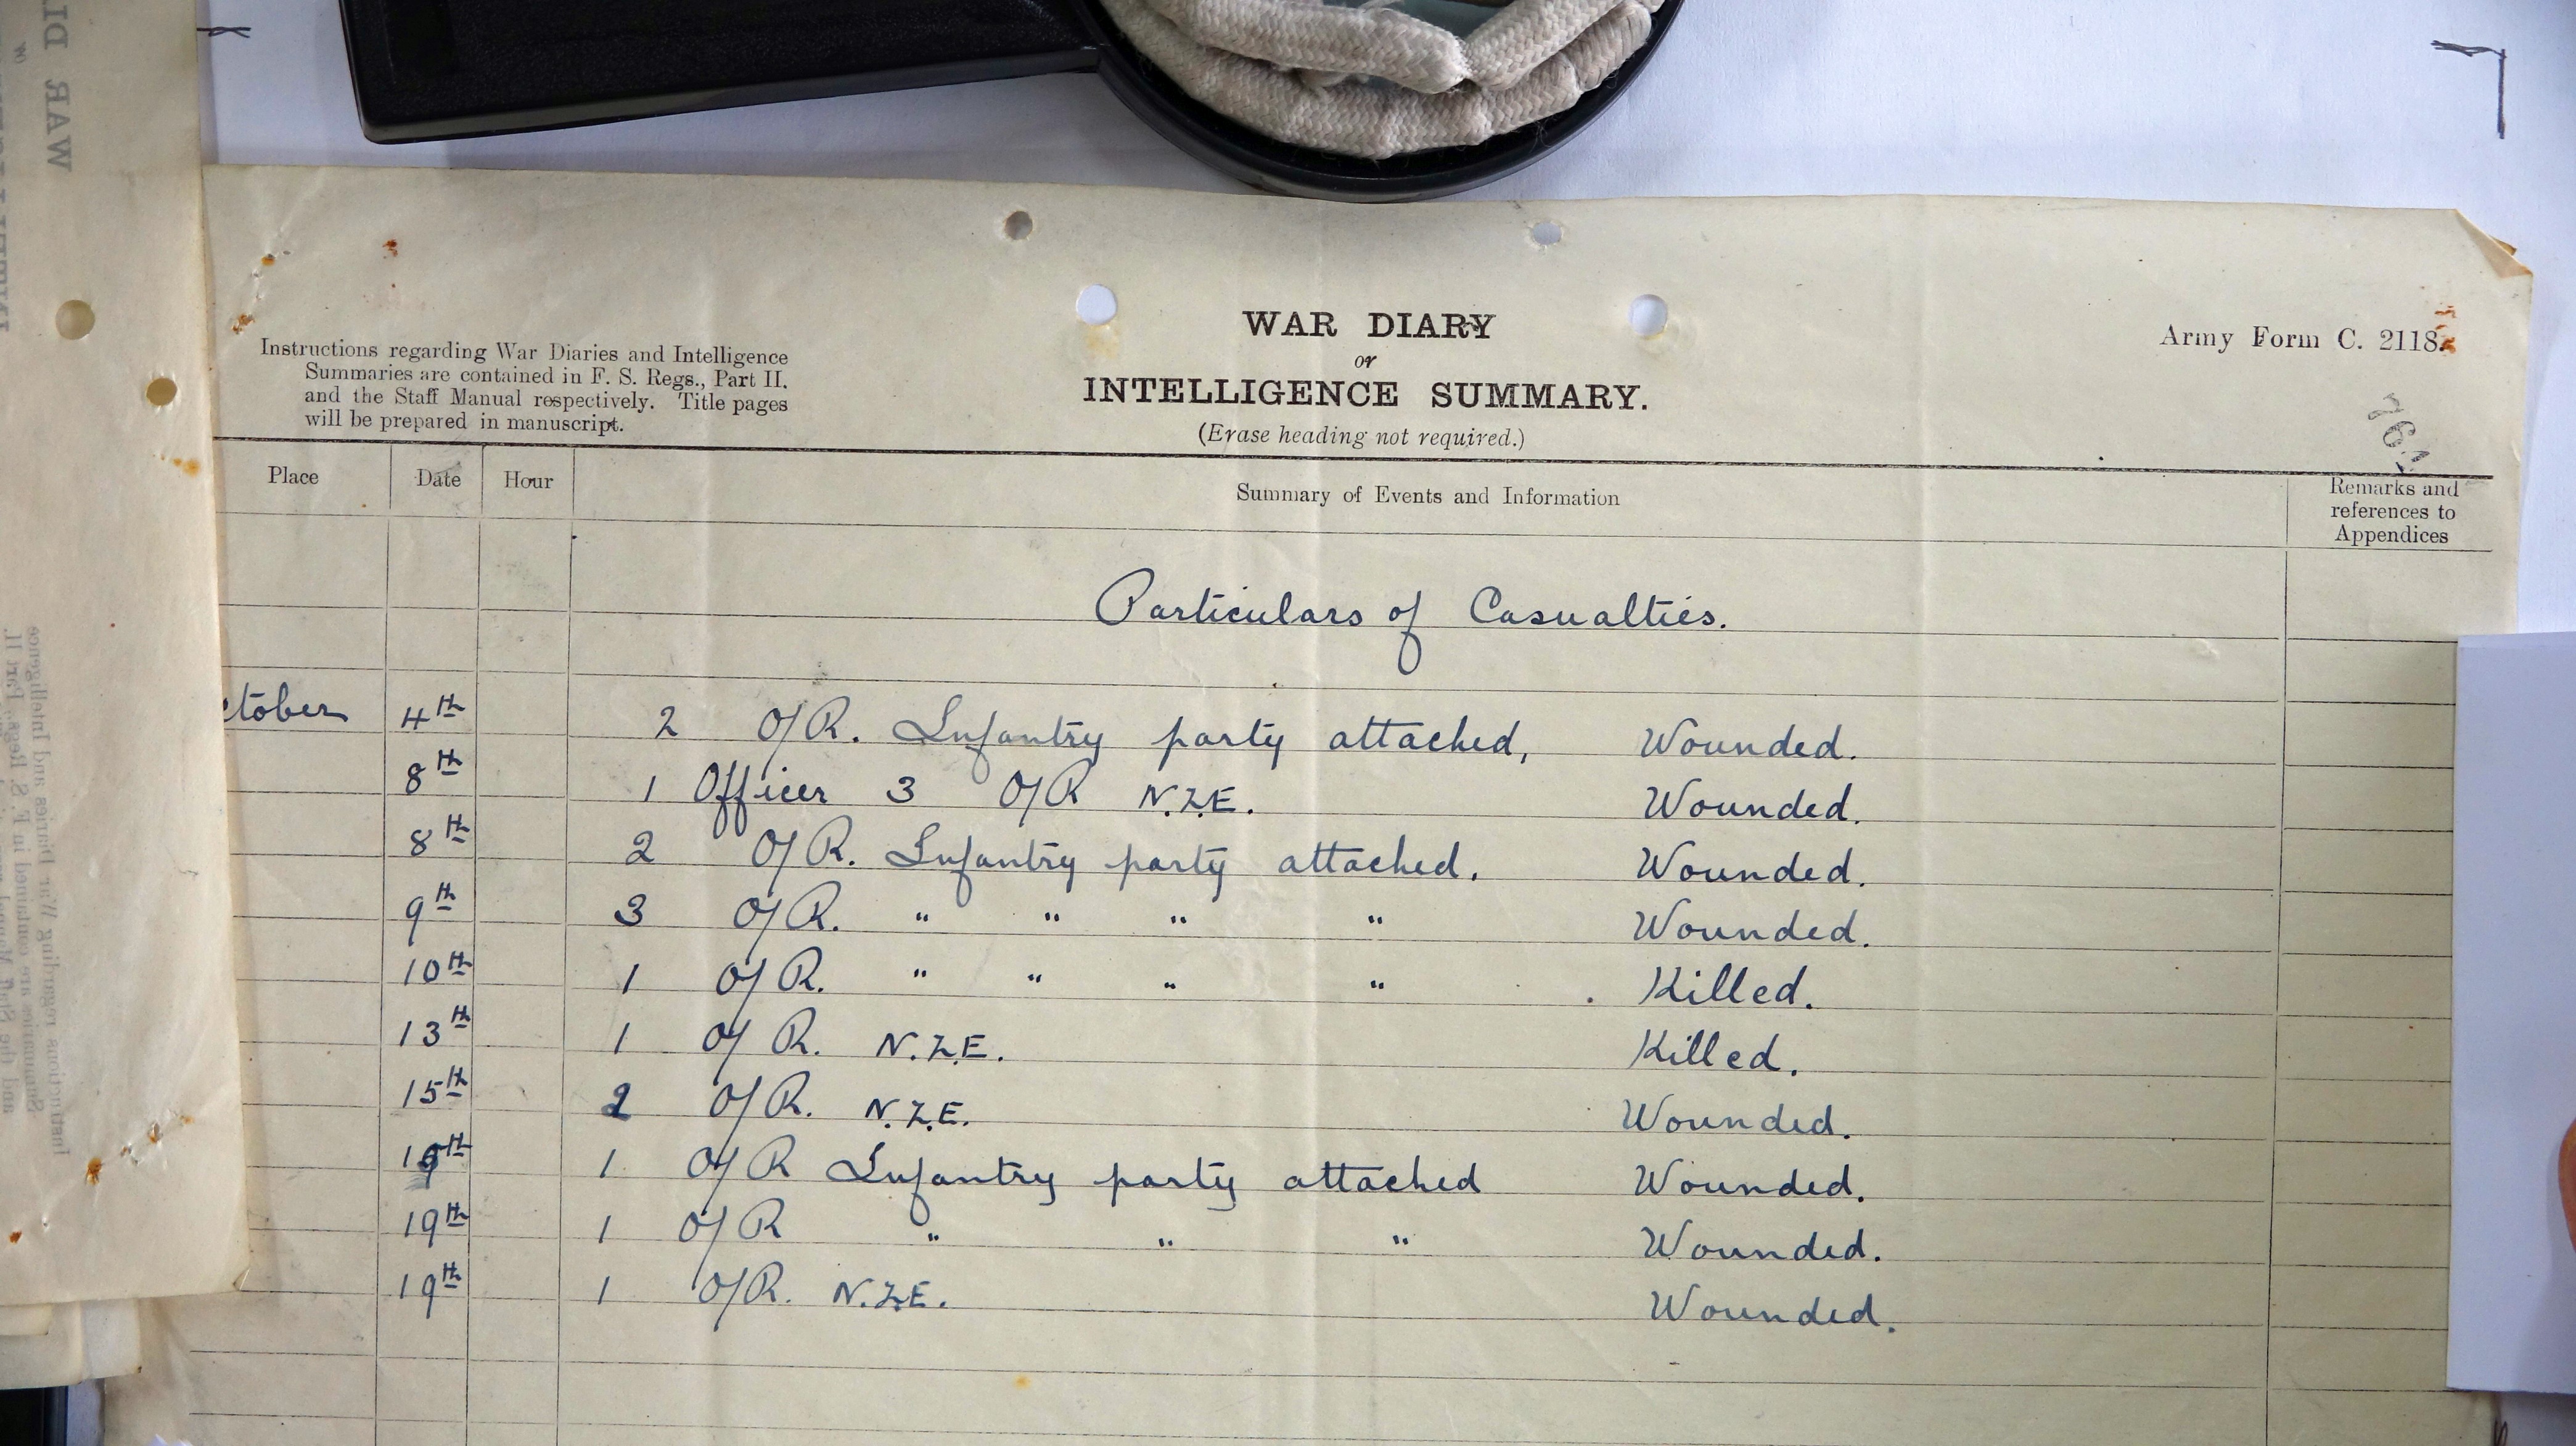 WAR DIARY
or
INTELLIGENCE SUMMARY.
(Erase heading not required.)
Army Form C. 2118.
Instructions regarding War Diaries and Intelligence
Summaries are contained in F. S. Regs., Part II.
and the Staff Manual respectively. Title pages
will be prepared in manuscript.
Place Date Hour Summary of Events and Information Remarks and
references to
Appendices
Particulars of Casualties.
ctober 4th 2 O/R. Infantry party attached, Wounded.
8th 1 Officer 3 O/R N.Z.E. Wounded.
8th 2 O/R. Infantry party attached. Wounded.
9th 3 O/R. " " " " Wounded.
10th 1 O/R. " " " " Killed.
13th 1 O/R. N.Z.E. Killed.
15th 2 O/R. N.Z.E. Wounded.
1 O/R Infantry party attached Wounded.
19th 1 O/R " " " Wounded.
19th 1 O/R. N.Z.E. Wounded.